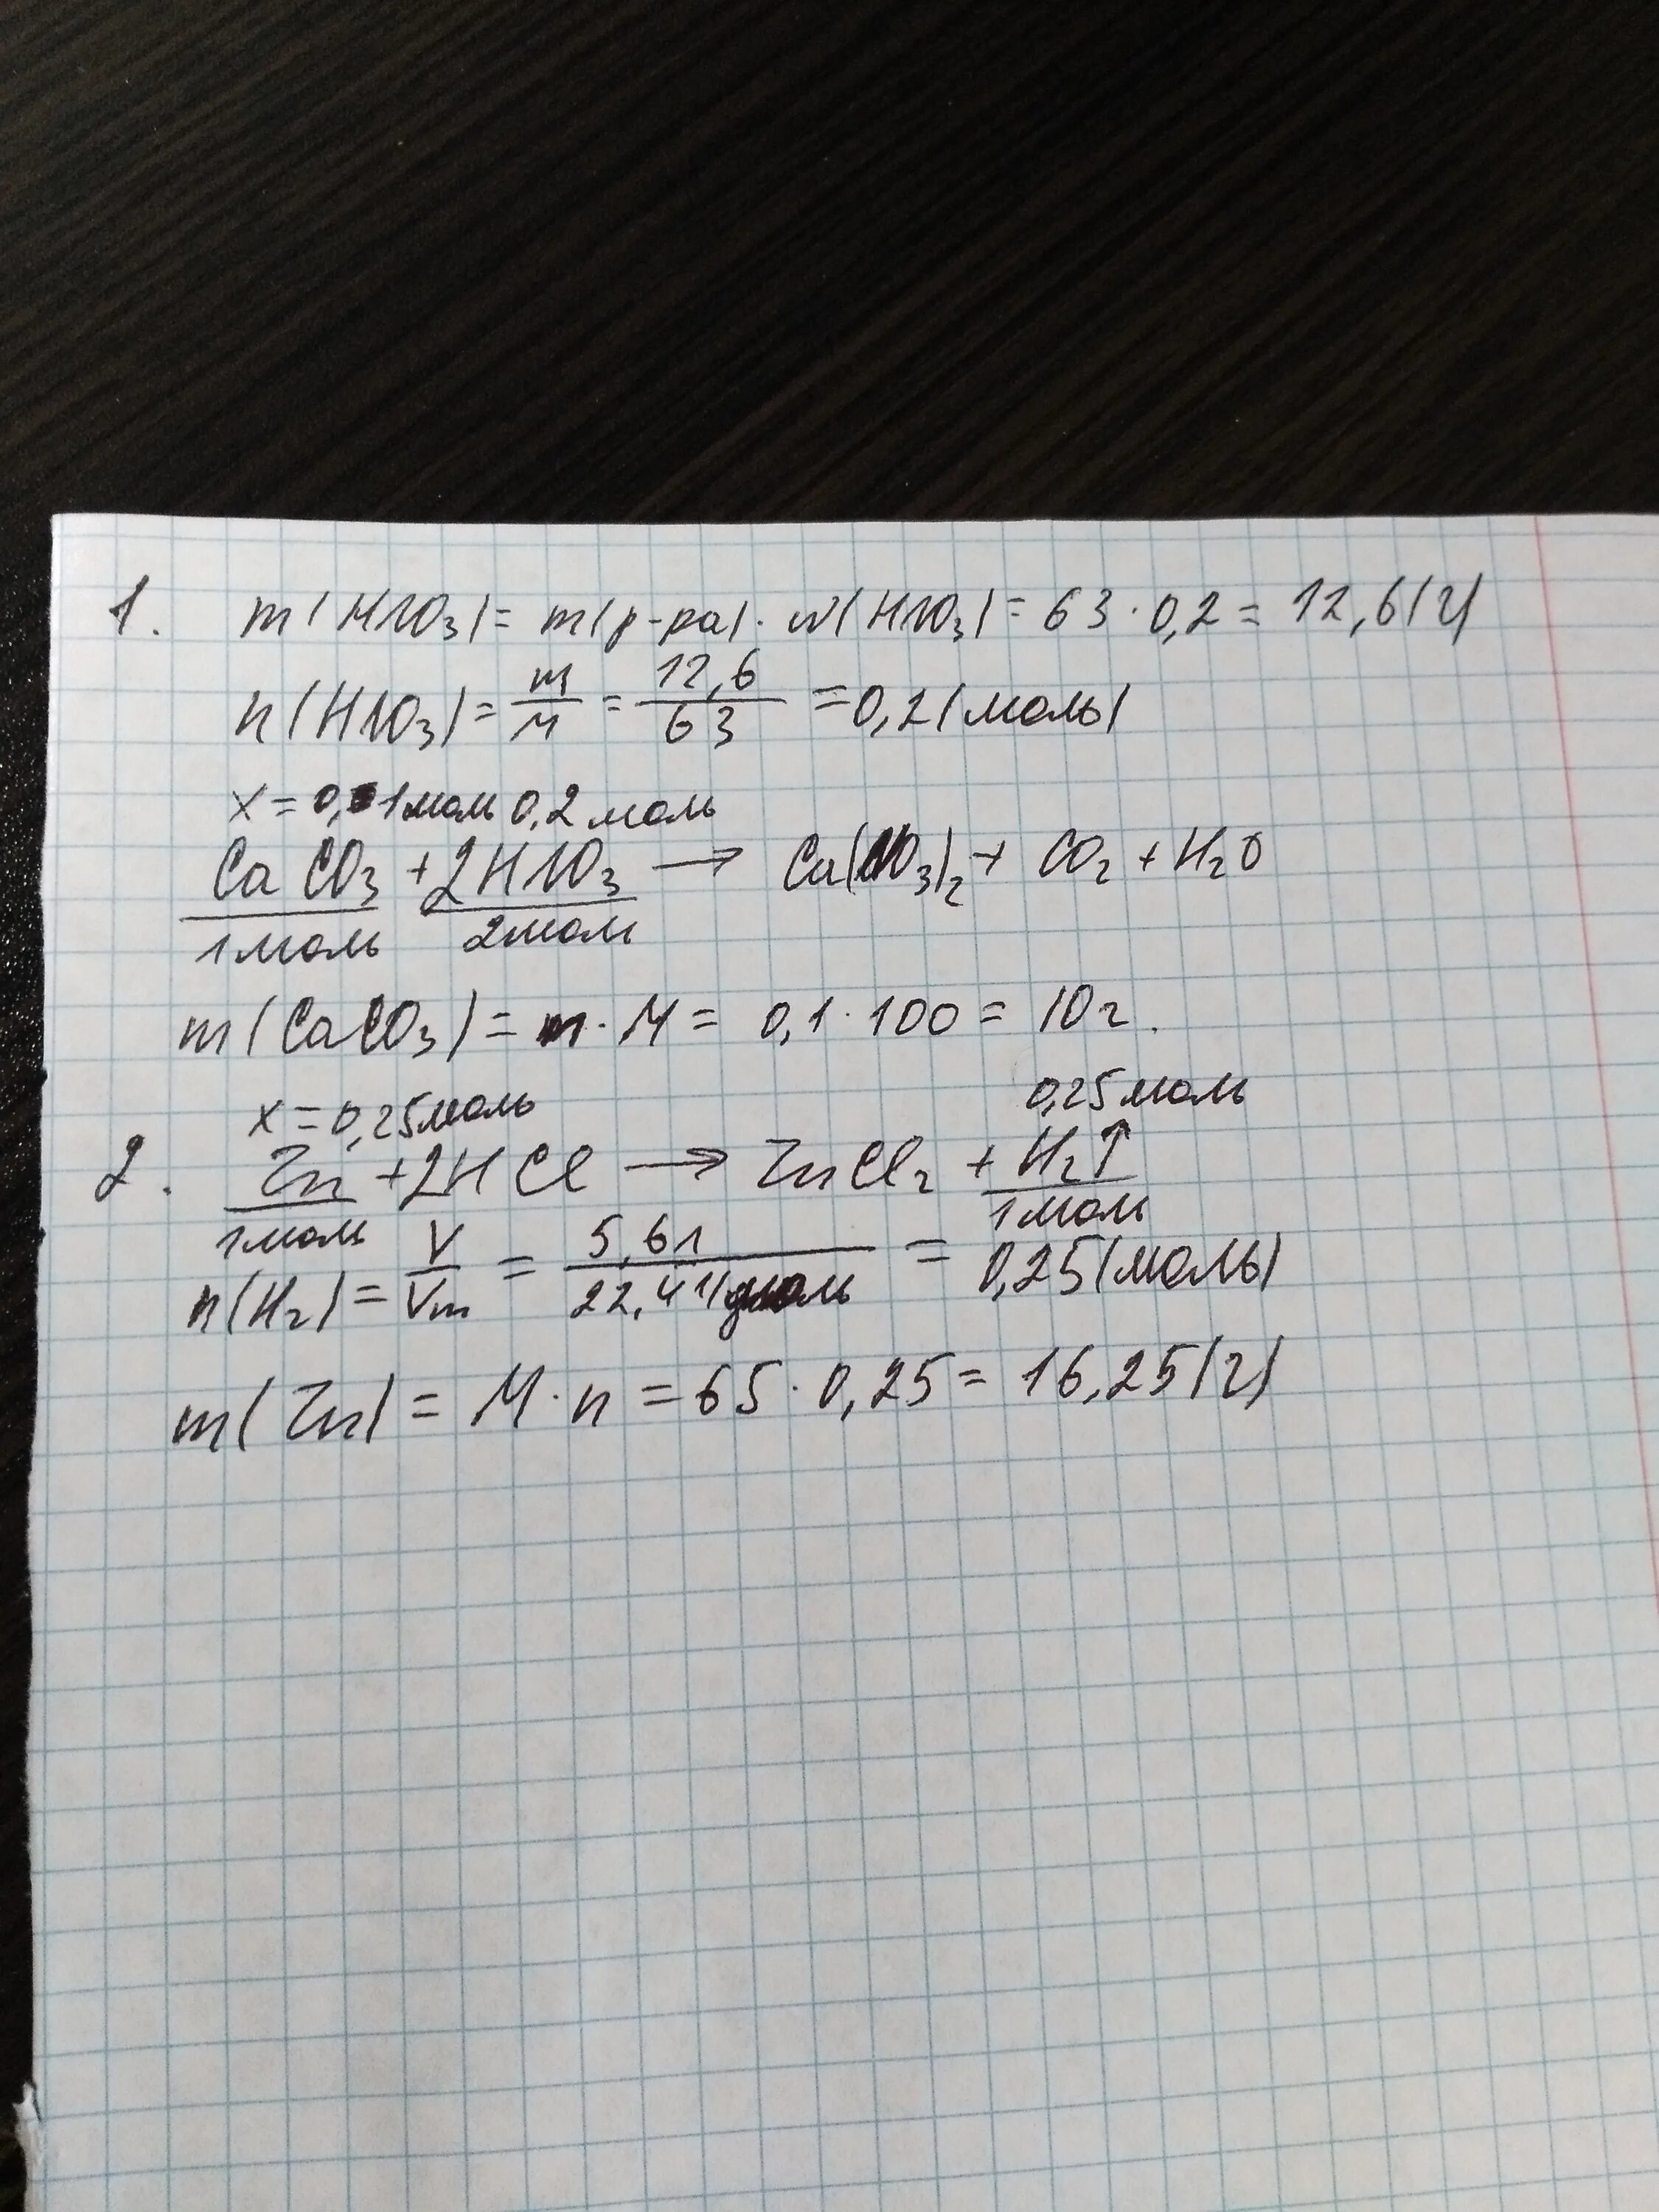 1. m(HNO3) = m(р-ра) · w(HNO3) = 63 · 0,2 = 12,6(г)
n(HNO3) = m/M = 12,6/63 = 0,2(моль)
x = 0,1моль 0,2 моль
CaCO3 + 2HNO3 → Ca(NO3)2 + CO2 + H2O
1моль 2моль
m(CaCO3) = n · M = 0,1 · 100 = 10г.
x = 0,25моль 0,25моль
2. Zn + 2HCl → ZnCl2 + H2↑
1моль 1моль
n(H2) = V/Vm = 5,6л/22,4л/моль = 0,25(моль)
m(Zn) = M · n = 65 · 0,25 = 16,25(г)